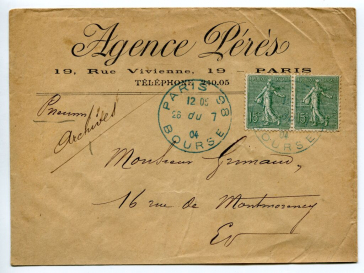 Agence Pérès
19, Rue Vivienne, 19 PARIS
TÉLÉPHONE 240.05
Pneum
Archives
PARIS 98
12.05
28 du 7
04
BOURSE
15 15
Monsieur Grimaud,
16 rue de Montmorency
EV